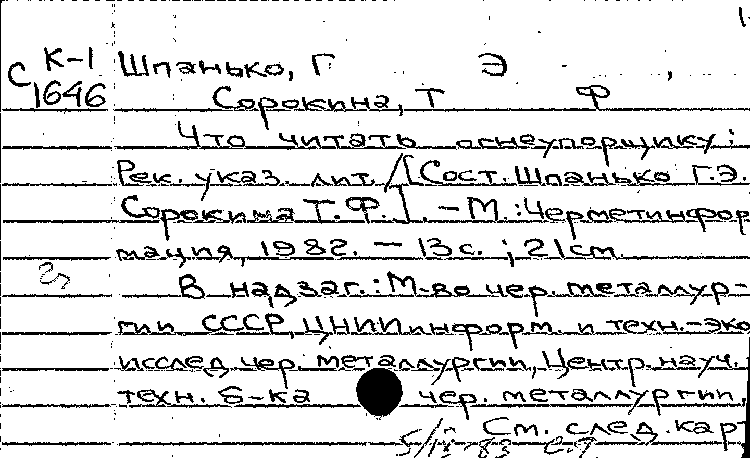 С К-1 Шпанько, Г Э ,
1646 Сорокина, Т Ф
Что читать огнеупорщику:
Рек. указ. лит. / [Сост. Шпанько Г.Э.
Сорокина Т.Ф.]. – М.: Черметинфор
мация, 1982. – 13с. ; 21см.
В надзаг.: М-во чер. металлур-
гии СССР, ЦНИИинформ. и техн.-эко
исслед. чер. металлургии, Центр. науч.
техн. б-ка чер. металлургии.
См. след. карт